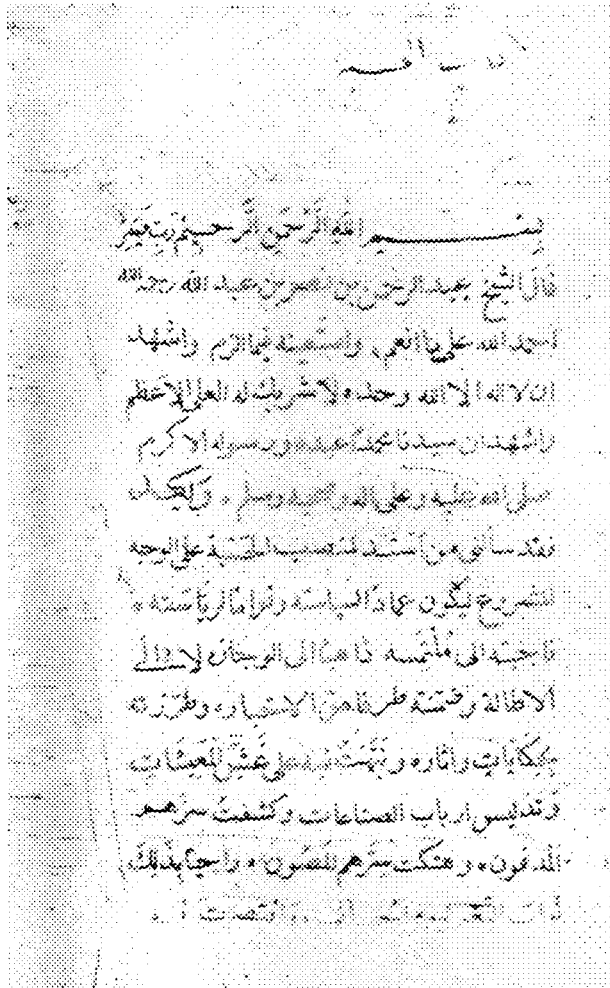 بسم الله الرحمن الرحيم رب يسر
قال الشيخ عبد الرحمن بن نصر بن عبد الله رحمه الله
احمد الله على ما انعم، واستعينه فيما الزم واشهد
ان لا اله الا الله وحده لا شريك له العلي الاعظم
واشهد ان سيدنا محمدا عبده ورسوله الاكرم
صلى الله عليه وعلى اله وصحبه وسلم، وبعد
فقد سألني من استند لمنصب الحسبة على الوجه
المشروع ليكون عمادا لسياسته وقواما لرياسته،
فاجبته الى ملتمسه ذاهبا الى الوجازه لا الى
الاطالة وضمنته طرفا من الاخبار، وطرزته
بحكايات واثار، ونبهت فيه على غش المعيشات
وتدليس ارباب الصناعات وكشفت سرهم
المدفون، وهتكت سترهم المصون، راجيا بذلك